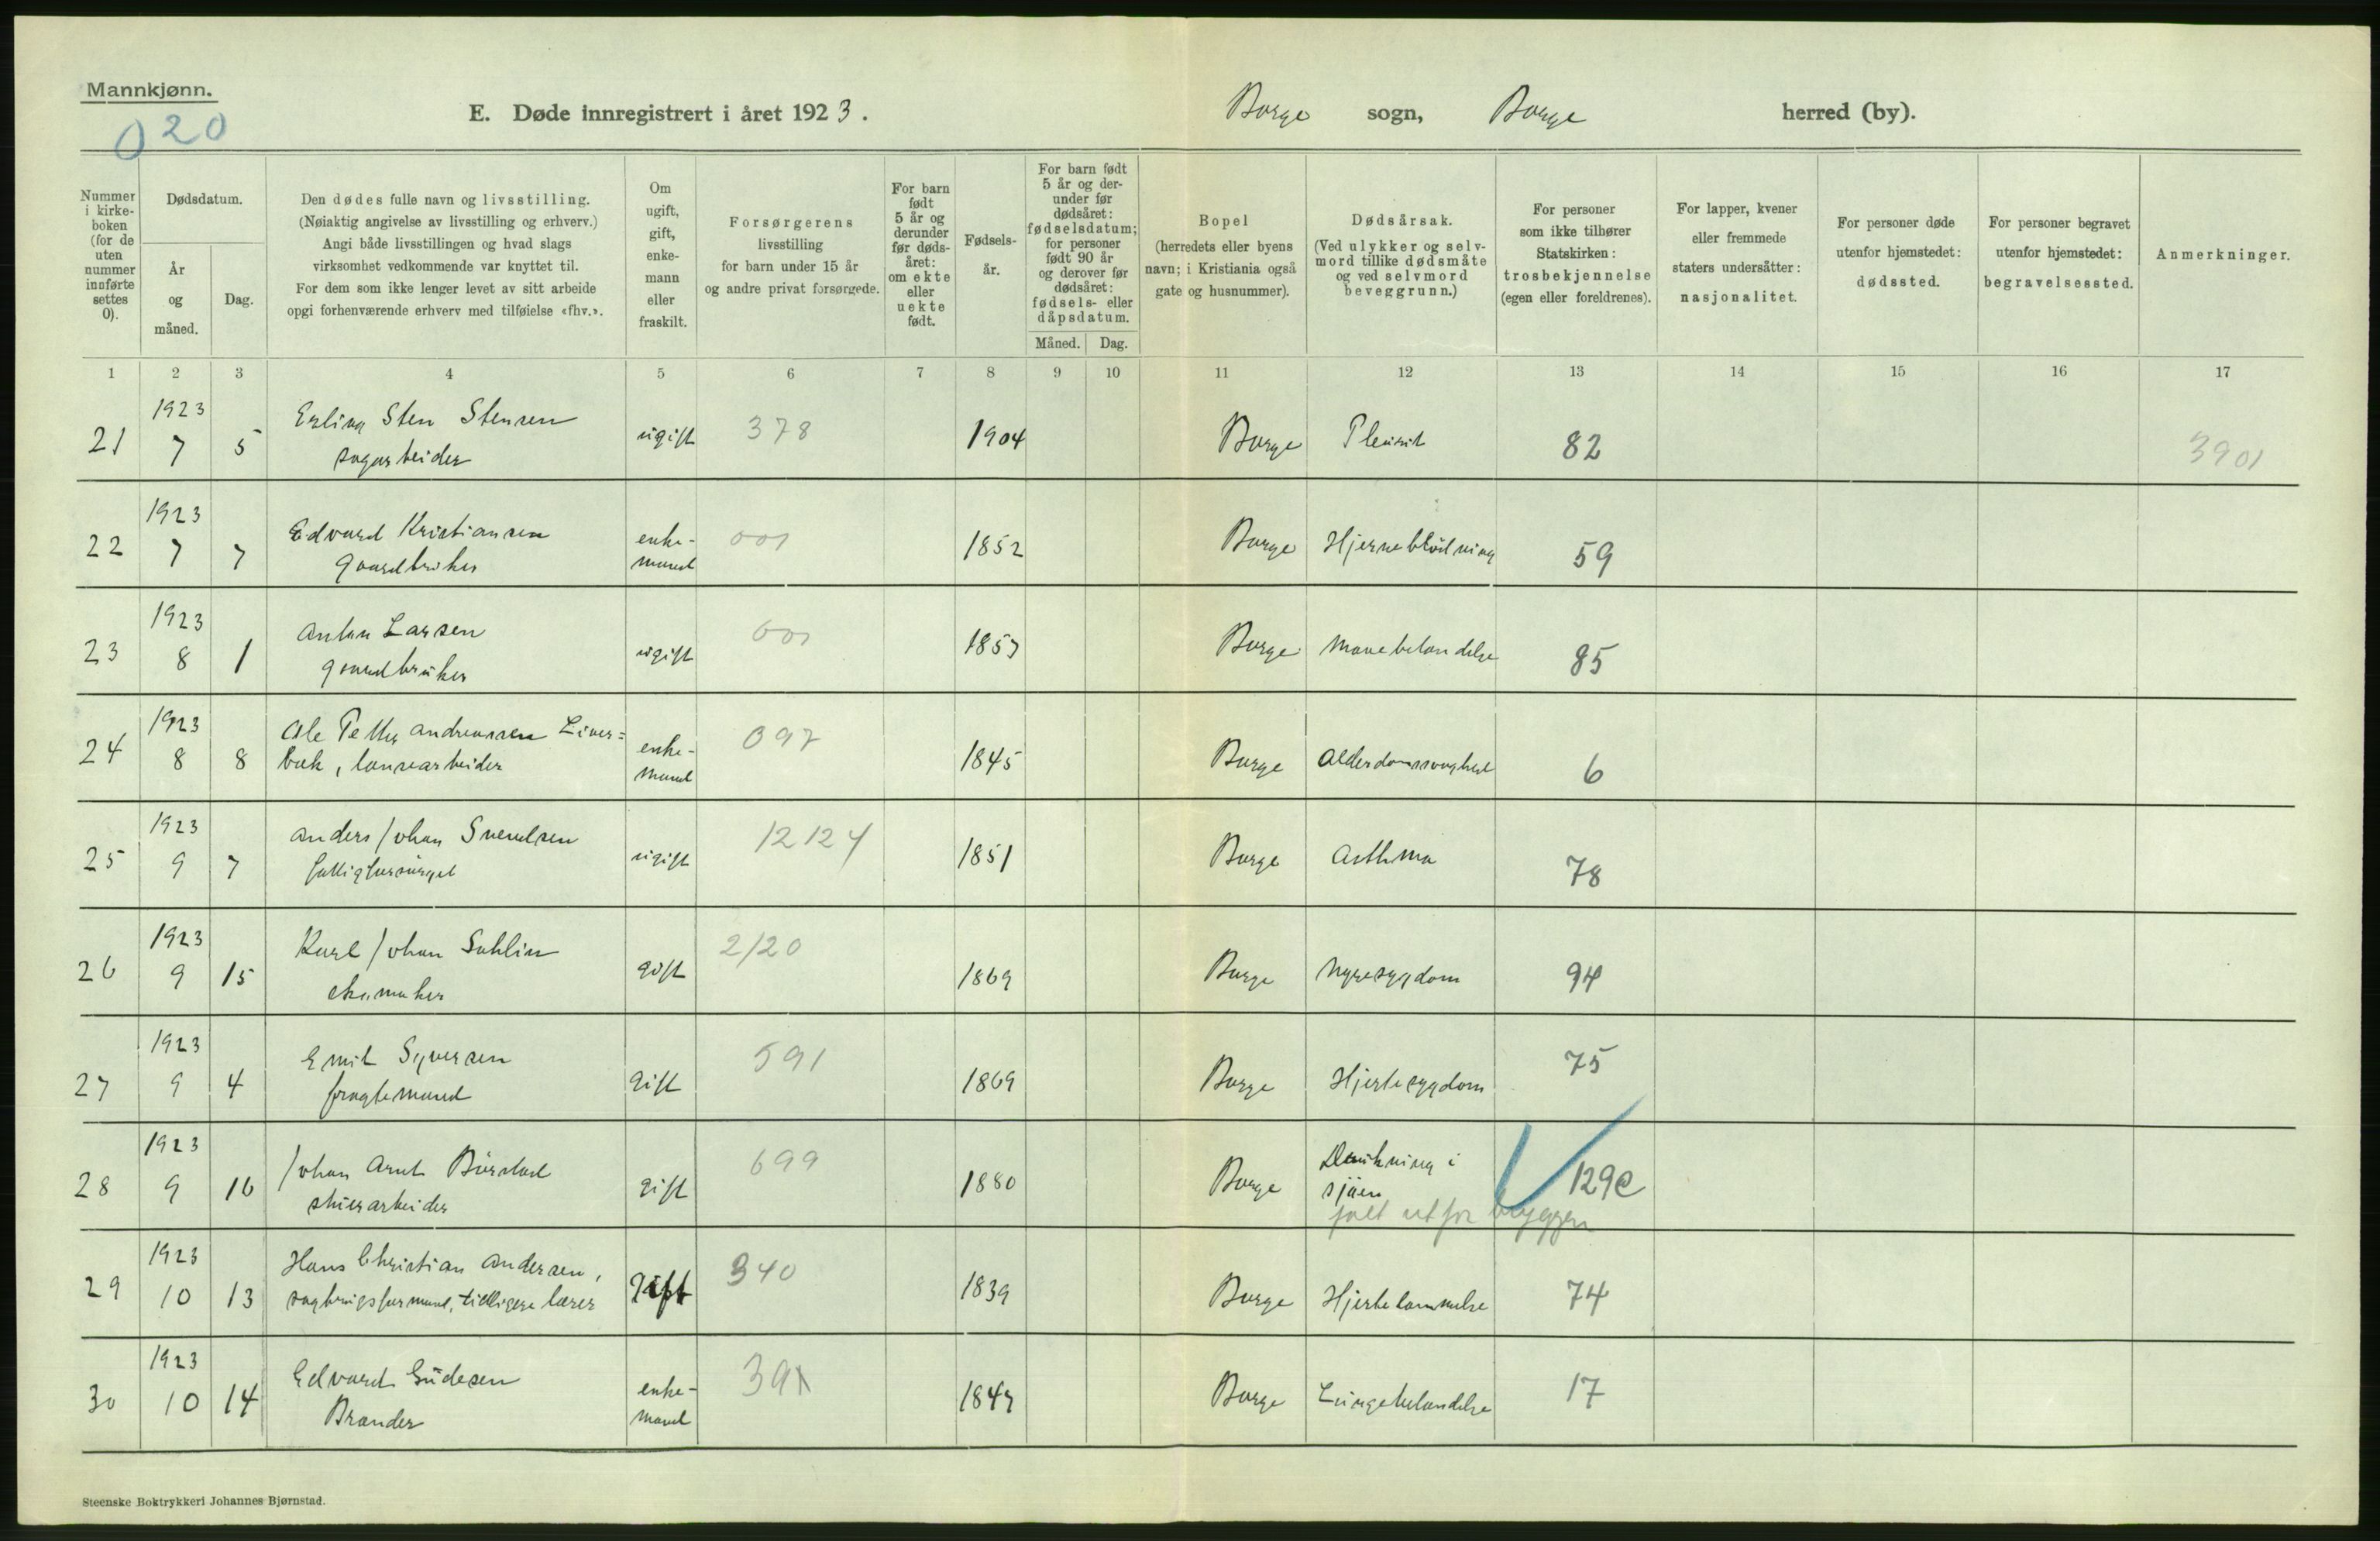 Mannkjønn.
020
E. Døde innregistrert i året 1923.
Borge sogn, Borge herred (by).
Nummer i kirke- boken (for de uten nummer innførte settes 0).
Dødsdatum.
År og måned.
Dag.
Den dødes fulle navn og livsstilling.
(Nøiaktig angivelse av livsstilling og erhverv.)
Angi både livsstillingen og hvad slags
virksomhet vedkommende var knyttet til.
For dem som ikke lenger levet av sitt arbeide
opgi forhenværende erhverv med tilføielse «fhv.».
Om ugift, gift, enke- mann eller fraskilt.
Forsørgerens
livsstilling
for barn under 15 år
og andre privat forsørgede.
For barn født 5 år og derunder før døds- året: om ekte eller uekte født.
Fødsels- år.
For barn født 5 år og der- under før dødsåret: fødselsdatum; for personer født 90 år og derover før dødsåret: fødsels- eller dåpsdatum.
Måned. Dag.
Bopel
(herredets eller byens
navn; i Kristiania også
gate og husnummer).
Dødsårsak.
(Ved ulykker og selv-
mord tillike dødsmåte
og ved selvmord
beveggrunn.)
For personer
som ikke tilhører
Statskirken:
trosbekjennelse
(egen eller foreldrenes).
For lapper, kvener
eller fremmede
staters undersåtter:
nasjonalitet.
For personer døde
utenfor hjemstedet:
dødssted.
For personer begravet
utenfor hjemstedet:
begravelsessted.
Anmerkninger.
1 2 3 4 5 6 7 8 9 10 11 12 13 14 15 16 17
21 1923 7 5 Erling Sten Stensen sagarbeider ugift 378 1904 Borge Pleurit 82 3901
22 1923 7 7 Edvard Kristiansen gaardbruker enke- mand 001 1852 Borge Hjerneblödning 59
23 1923 8 1 Anton Larsen gaardbruker ugift 001 1857 Borge Mavebetændelse 85
24 1923 8 8 Ole Petter Andreassen Liver= bæk, lænsearbeider enke- mand 097 1845 Borge Alderdomssvaghed 6
25 1923 9 7 Anders Johan Svendsen fattigforsörget ugift 12124 1851 Borge Asthma 78
26 1923 9 15 Karl Johan Sahlin skomaker gift 2120 1869 Borge Nyresygdom 94
27 1923 9 4 Emil Syversen fragtemand gift 591 1869 Borge Hjertesygdom 75
28 1923 9 16 Johan Arnt Börstad skierarbeider gift 699 1880 Borge Drukning i sjöen falt ut for bryggen 129e
29 1923 10 13 Hans Christian Andersen, sagbrugsformand, tidligere lærer gift 340 1839 Borge Hjertelammelse 74
30 1923 10 14 Edvard Gudesen Brænder enke- mand 391 1847 Borge Lungebetændelse 17
Steenske Boktrykkeri Johannes Bjørnstad.